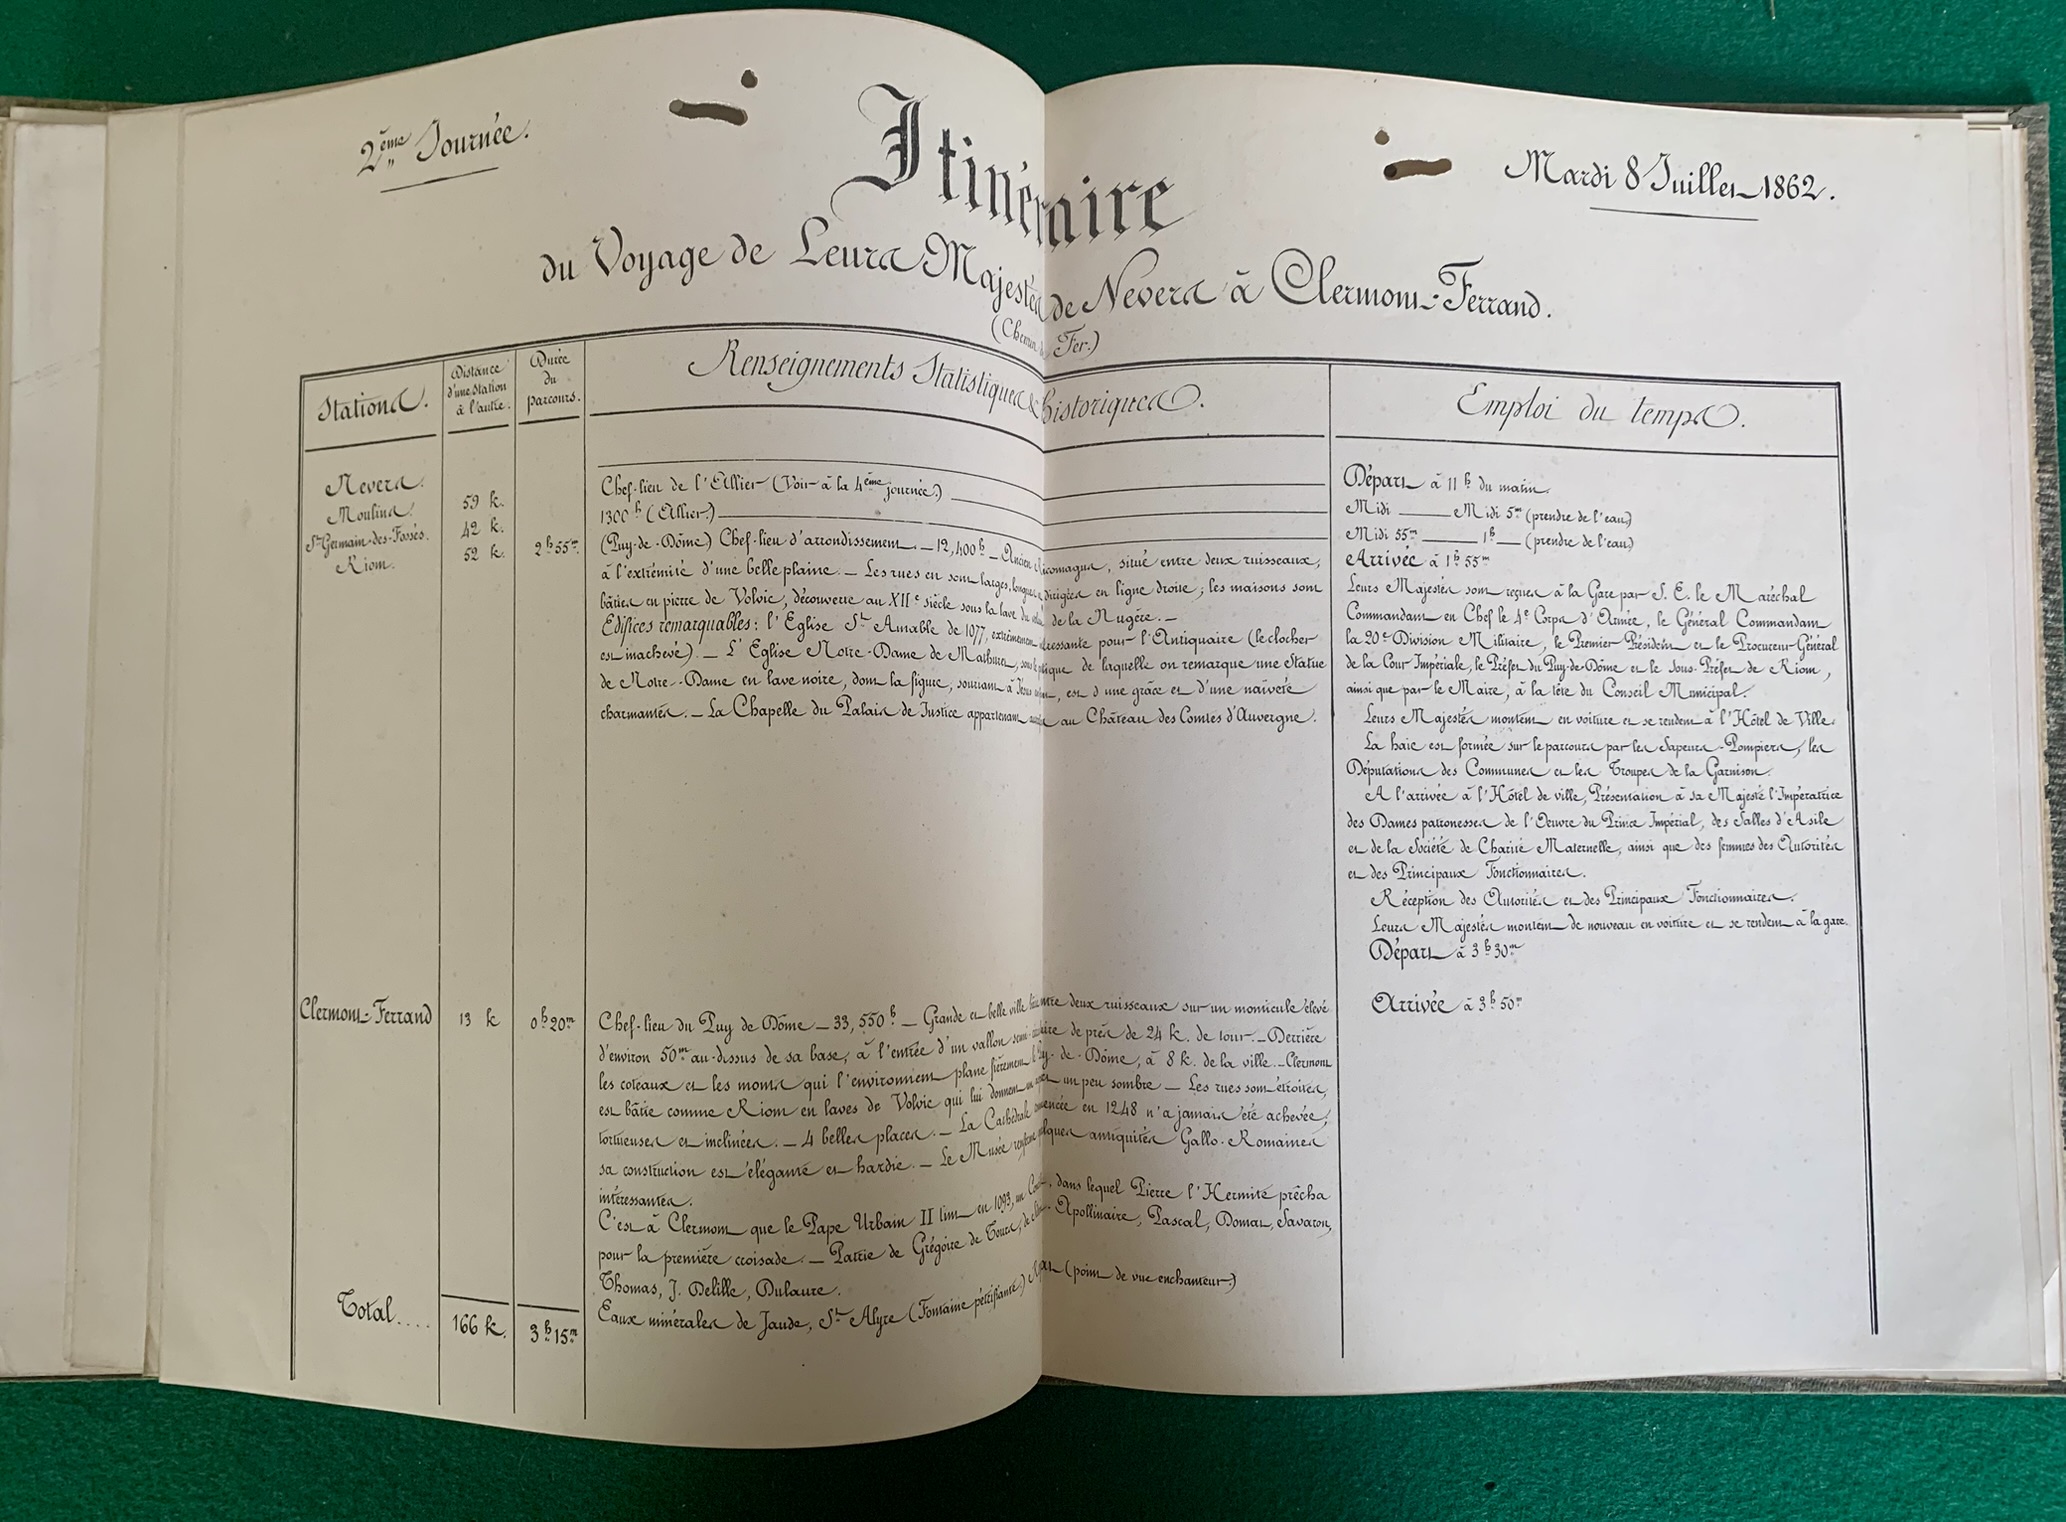 2ème Journée.
Mardi 8 Juillet 1862.
Itinéraire
du Voyage de Leurs Majestés de Nevers à Clermont-Ferrand.
(Chemin de Fer.)
Stations.
Distance
d'une Station
à l'autre.
Durée
du
parcours.
Renseignements Statistiques & historiques.
Emploi du temps.
Nevers.
Moulins.
St Germain-des-Fossés.
Riom.
59 k.
42 k.
52 k.
2h 55m.
Chef-lieu de l'Allier (Voir à la 4ème journée.)
1300 h (Allier.)
(Puy-de-Dôme) Chef-lieu d'arrondissement. — 12,400 h — Ancien Ricomagus, situé entre deux ruisseaux,
à l'extrémité d'une belle plaine. — Les rues en sont larges, longues, dirigées en ligne droite; les maisons sont
bâties en pierre de Volvic, découverte au XIIe siècle sous la lave du volcan de la Nugère. —
Edifices remarquables: l'Eglise St Amable de 1077, extrêmement intéressante pour l'Antiquaire (le clocher
est inachevé). — L'Eglise Notre-Dame de Mathuret, sous le portique de laquelle on remarque une Statue
de Notre-Dame en lave noire, dont la figure, souriant à Jésus enfant, est d'une grâce et d'une naïveté
charmantes. — La Chapelle du Palais de Justice appartenant au Château des Comtes d'Auvergne.
Départ à 11 h du matin.
Midi — Midi 5m (prendre de l'eau)
Midi 55m — 1h — (prendre de l'eau)
Arrivée à 1h 55m
Leurs Majestés sont reçues à la Gare par S. E. le Maréchal
Commandant en Chef le 4e Corps d'Armée, le Général Commandant
la 20e Division Militaire, le Premier Président et le Procureur Général
de la Cour Impériale, le Préfet du Puy-de-Dôme et le Sous-Préfet de Riom,
ainsi que par le Maire, à la tête du Conseil Municipal.
Leurs Majestés montent en voiture et se rendent à l'Hôtel de Ville.
La haie est formée sur le parcours par les Sapeurs-Pompiers, les
Députations des Communes et les Troupes de la Garnison.
A l'arrivée à l'Hôtel de ville, Présentation à sa Majesté l'Impératrice
des Dames patronesses de l'Oeuvre du Prince Impérial, des Salles d'Asile
et de la Société de Charité Maternelle, ainsi que des femmes des Autorités
et des Principaux Fonctionnaires.
Réception des Autorités et des Principaux Fonctionnaires.
Leurs Majestés montent de nouveau en voiture et se rendent à la gare.
Départ à 3h 30m
Clermont-Ferrand
13 k
0h 20m
Chef-lieu du Puy de Dôme — 33,550 h — Grande et belle ville bâtie entre deux ruisseaux sur un monticule élevé
d'environ 50m au-dissus de sa base, à l'entrée d'un vallon semi-circulaire de près de 24 k. de tour. — Derrière
les coteaux et les monts qui l'environnent plane fièrement le Puy-de-Dôme, à 8 k. de la ville. — Clermont
est bâtie comme Riom en laves de Volvic qui lui donnent un aspect un peu sombre — Les rues sont étroites,
tortueuses et inclinées. — 4 belles places. — La Cathédrale commencée en 1248 n'a jamais été achevée;
sa construction est élégante et hardie. — Le Musée renferme quelques antiquités Gallo-Romaines
intéressantes.
C'est à Clermont que le Pape Urbain II tint en 1093, un Concile, dans lequel Pierre l'Hermite prêcha
pour la première croisade. — Patrie de Grégoire de Tours, de Sidoine-Apollinaire, Pascal, Domat, Savaron,
Thomas, J. Delille, Dulaure.
Eaux minérales de Jaude, St Alyre (Fontaine pétrifiante) Royat (point de vue enchanteur.)
Arrivée à 3h 50m
Total....
166 k.
3h 15m